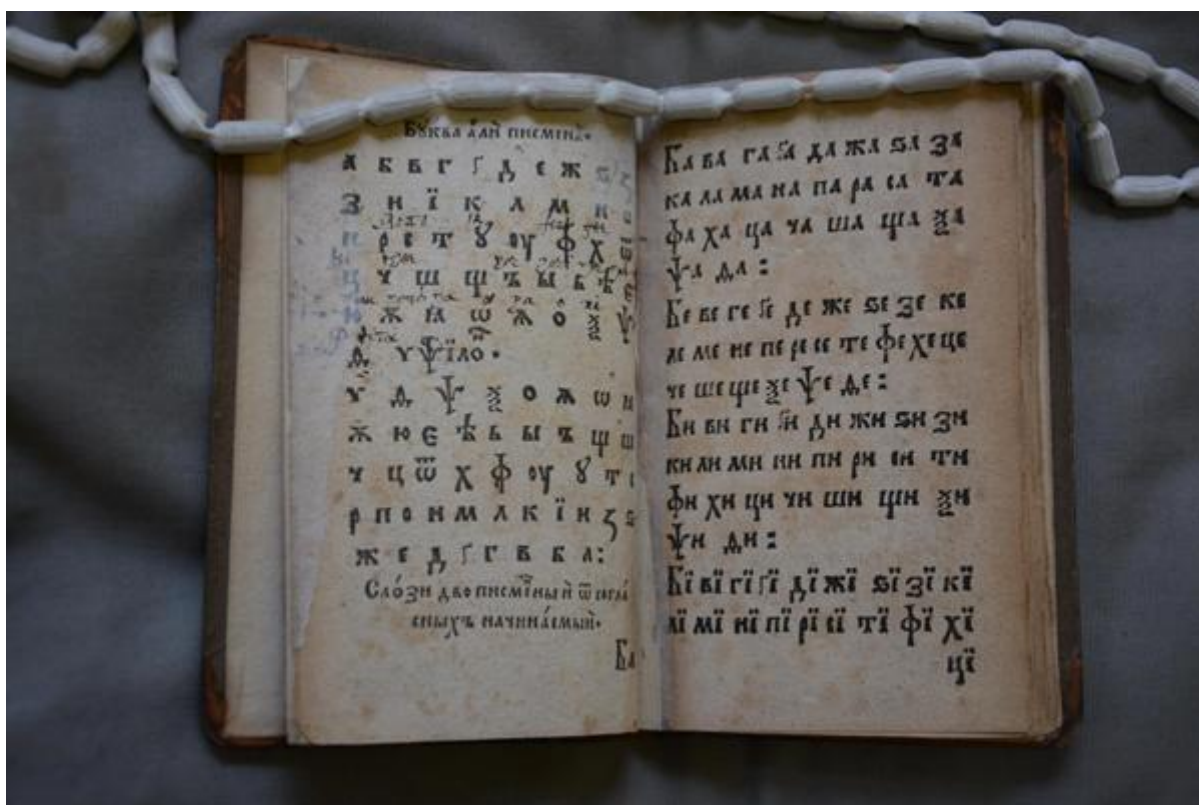 Бꙋ́ква а҆лѝ писмена̀.
а б в г ґ д е ж ѕ ꙁ
З и ї к л м н о
п р с т ꙋ оу ф х
ц ч ш щ ъ ы ь ѣ є
ю ж ꙗ ѡ ѫ о ѯ ѱ
ѧ ѵ Ѱїло.
ѵ ѧ ѱ ѯ о ѫ ѡ и
ж ю є ѣ ь ы ъ щ ш
ч ц ѿ х ф оу ꙋ т с
р п о н м л к ї и ꙁ ѕ
ж е д ґ г в б а:
Сло́зи двописме́ныи ѿ согла́
сныхъ начина́емыи.
Ба
Ба ва га ґа да жа ѕа за
ка ла ма на па ра са та
фа ха ца ча ша ща ѯа
ѱа ѧа :
Бе ве ге ґе де же ѕе зе ке
ле ме не пе ре се те фе хе це
че ше ще ѯе ѱе ѧе :
Би ви ги ґи ди жи ѕи зи
ки ли ми ни пи ри си ти
фи хи ци чи ши щи ѯи
ѱи ѧи :
Бї вї гї ґї дї жї ѕї зї кї
лї мї нї пї рї сї тї фї хї
цї